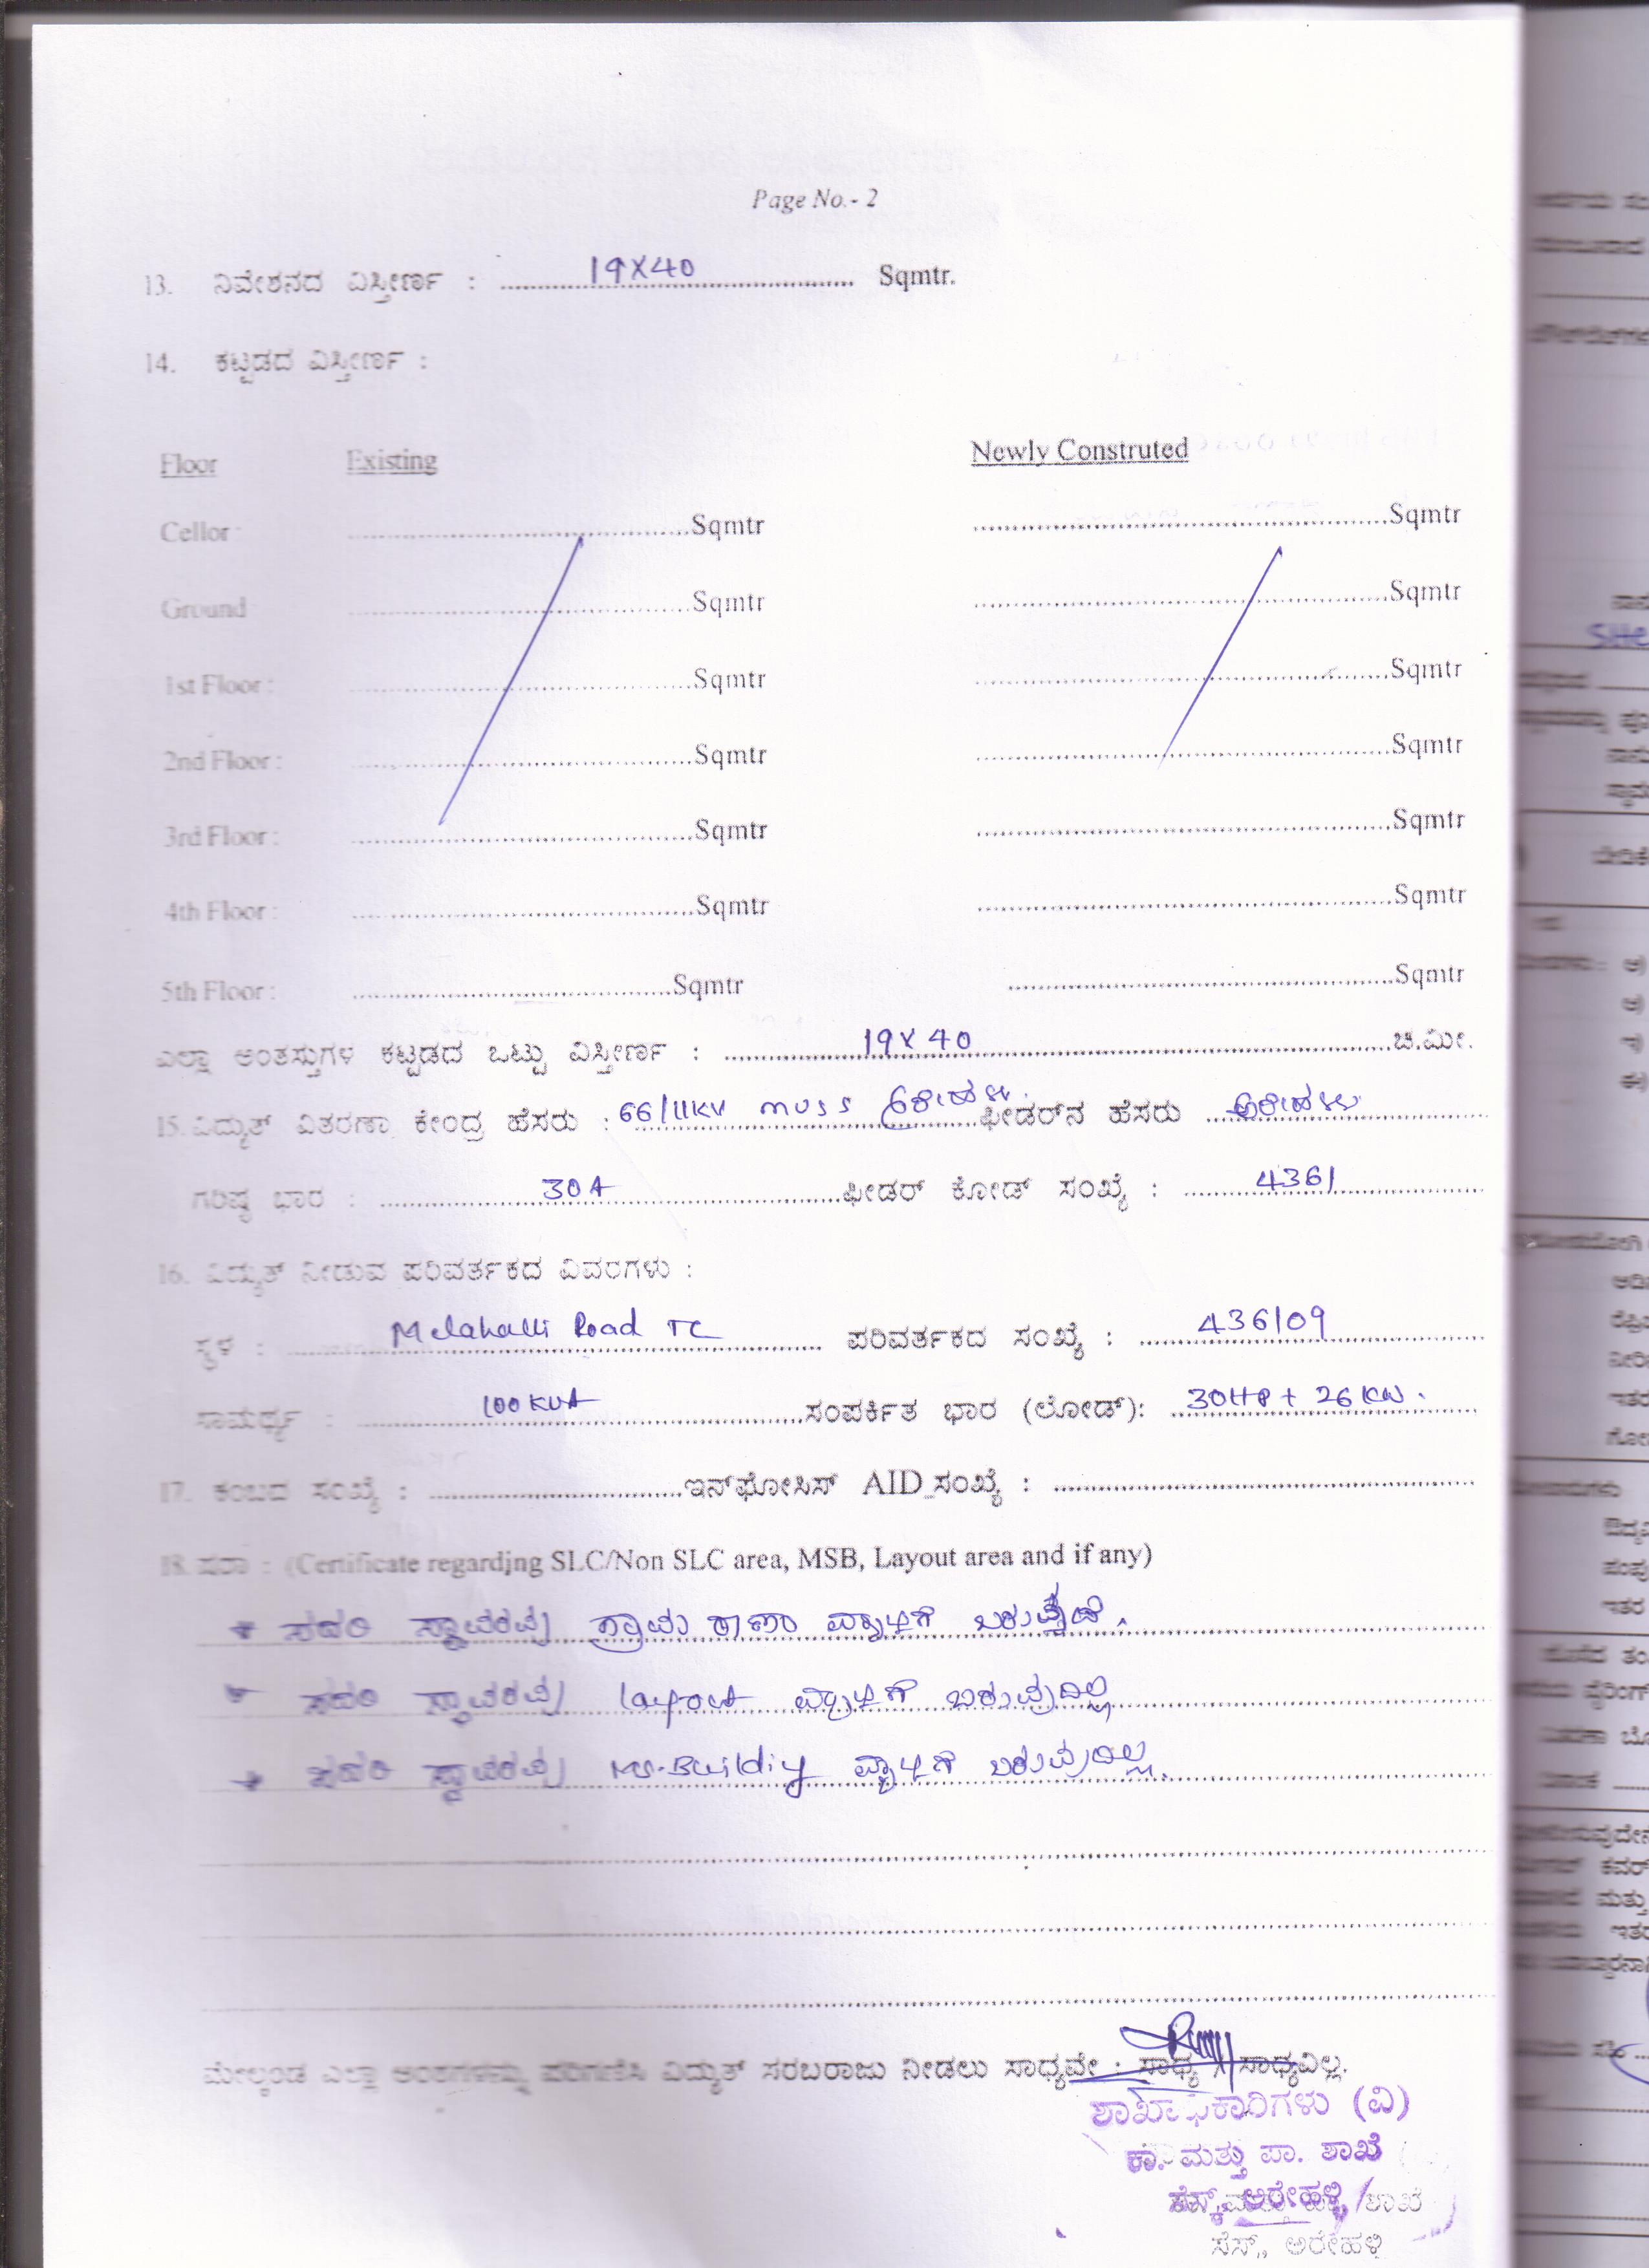 Page No.- 2
13. ನಿವೇಶನದ ವಿಸ್ತೀರ್ಣ : 19X40 Sqmtr.
14. ಕಟ್ಟಡದ ವಿಸ್ತೀರ್ಣ :
Floor Existing Newly Construted
Cellor : Sqmtr Sqmtr
Ground Sqmtr Sqmtr
1st Floor : Sqmtr Sqmtr
2nd Floor : Sqmtr Sqmtr
3rd Floor : Sqmtr Sqmtr
4th Floor : Sqmtr Sqmtr
5th Floor : Sqmtr Sqmtr
ಎಲ್ಲಾ ಅಂತಸ್ತುಗಳ ಕಟ್ಟಡದ ಒಟ್ಟು ವಿಸ್ತೀರ್ಣ : 19X40 ಚ.ಮೀ.
15. ವಿದ್ಯುತ್ ವಿತರಣಾ ಕೇಂದ್ರ ಹೆಸರು : 66/11KV MUSS ಅರೇಹಳ್ಳಿ ಫೀಡರ್‌ನ ಹೆಸರು ಅರೇಹಳ್ಳಿ
ಗರಿಷ್ಠ ಭಾರ : 30A ಫೀಡರ್ ಕೋಡ್ ಸಂಖ್ಯೆ : 4361
16. ವಿದ್ಯುತ್ ನೀಡುವ ಪರಿವರ್ತಕದ ವಿವರಗಳು :
ಸ್ಥಳ : Melahalli Road TC ಪರಿವರ್ತಕದ ಸಂಖ್ಯೆ : 436109
ಸಾಮರ್ಥ್ಯ : 100KVA ಸಂಪರ್ಕಿತ ಭಾರ (ಲೋಡ್): 30HP + 26KW.
17. ಕಂಬದ ಸಂಖ್ಯೆ : ಇನ್‌ಫೋಸಿಸ್ AID ಸಂಖ್ಯೆ :
18. ಷರಾ : (Certificate regarding SLC/Non SLC area, MSB, Layout area and if any)
* ಸದರಿ ಸ್ಥಾವರವು ಗ್ರಾಮ ಠಾಣಾ ವ್ಯಾಪ್ತಿಗೆ ಬರುತ್ತದೆ.
* ಸದರಿ ಸ್ಥಾವರವು layout ವ್ಯಾಪ್ತಿಗೆ ಬರುವುದಿಲ್ಲ
* ಸದರಿ ಸ್ಥಾವರವು MS-Building ವ್ಯಾಪ್ತಿಗೆ ಬರುವುದಿಲ್ಲ.
ಮೇಲ್ಕಂಡ ಎಲ್ಲಾ ಅಂಶಗಳನ್ನು ಪರಿಗಣಿಸಿ ವಿದ್ಯುತ್ ಸರಬರಾಜು ನೀಡಲು ಸಾಧ್ಯವೇ : ಸಾಧ್ಯ / ಸಾಧ್ಯವಿಲ್ಲ.
ಶಾಖಾಧಿಕಾರಿಗಳು (ವಿ)
ಕಾ. ಮತ್ತು ಪಾ. ಶಾಖೆ
ಸೆಸ್ಕ್, ಅರೇಹಳ್ಳಿ ಶಾಖೆ
ಸೆಸ್, ಅರೇಹಳ್ಳಿ